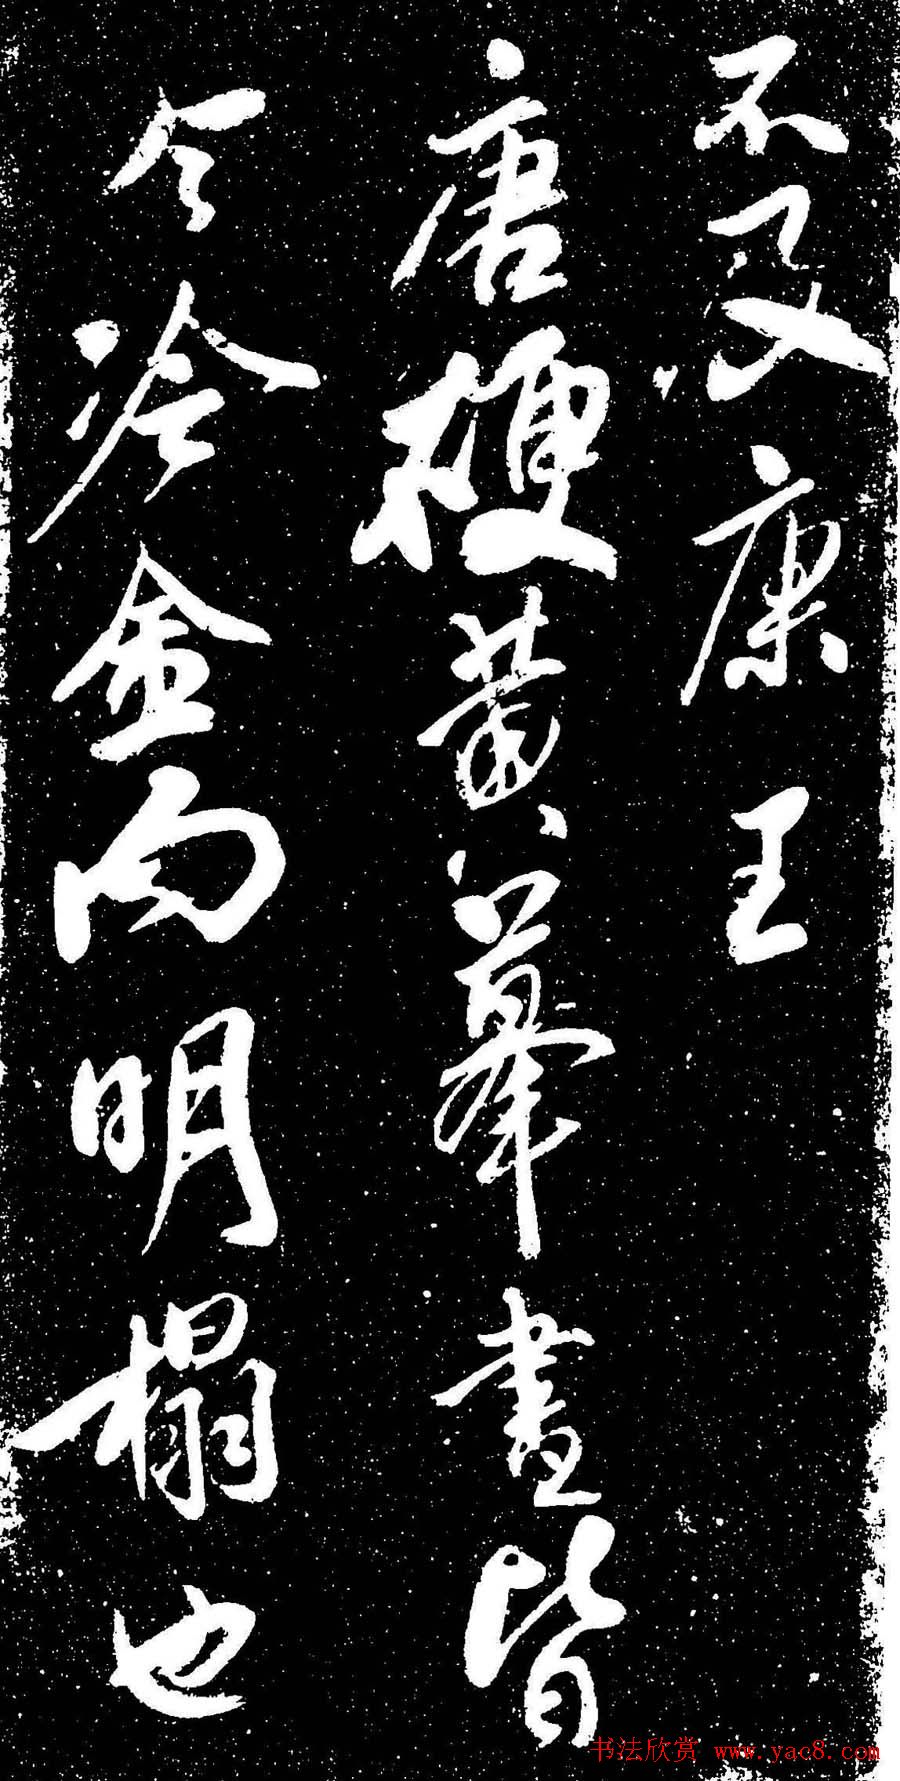 不及康王
唐梗黄摹畫皆
今冷金向明榻也
书法欣赏 www.yac8.com